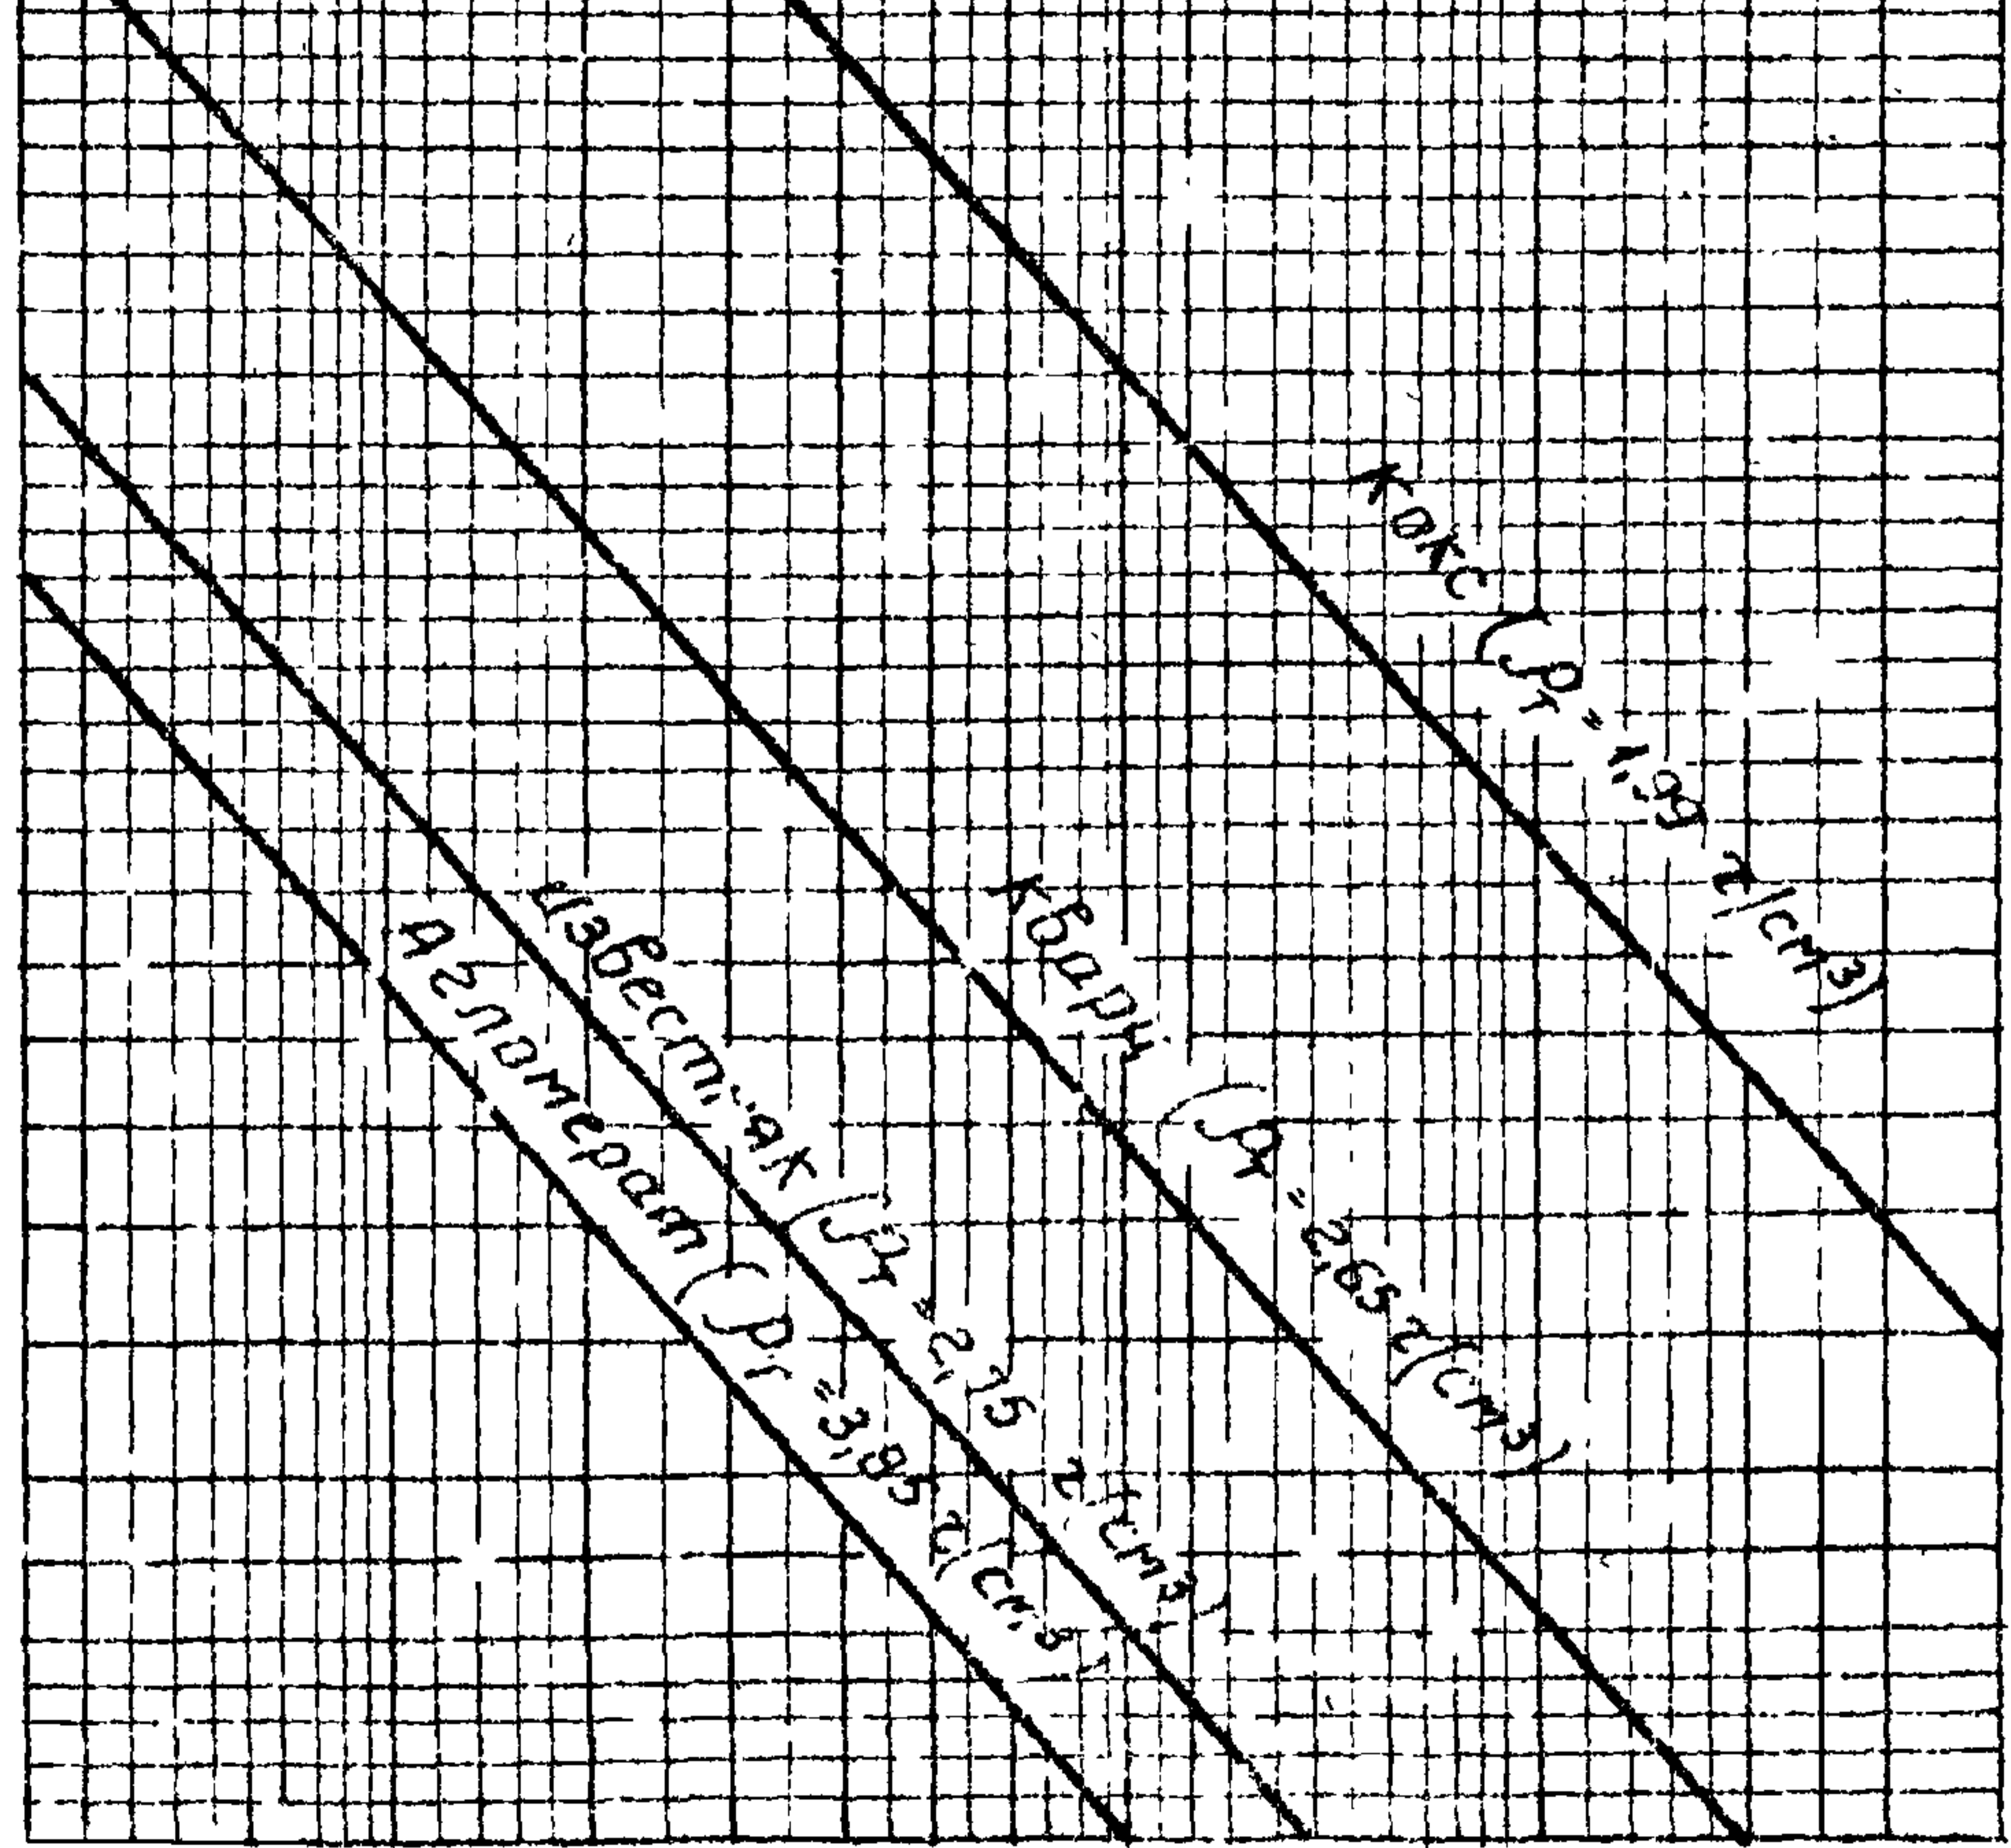 Кокс (ρт = 1,99 г/см³)
Кварц (ρт = 2,65 г/см³)
Известняк (ρт = 2,75 г/см³)
Агломерат (ρт = 3,85 г/см³)